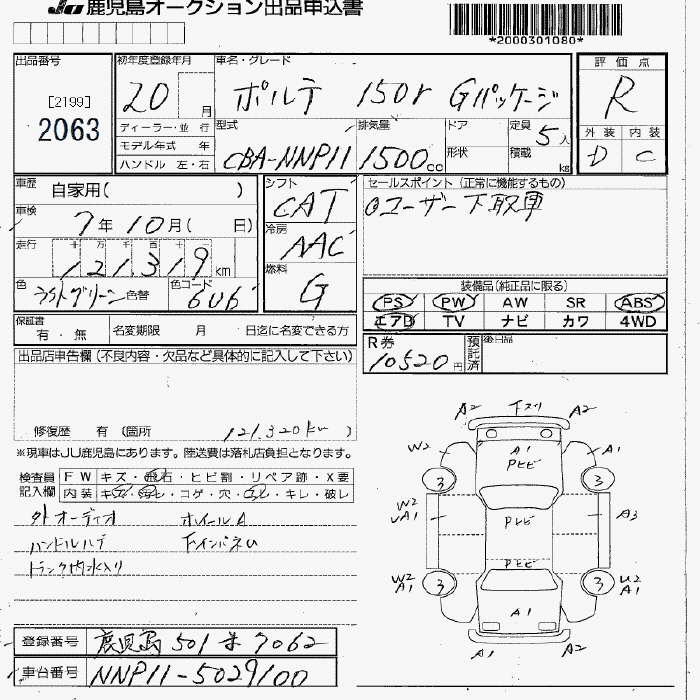 JU 鹿児島オークション出品申込書
*2000301080*
出品番号
[2199]
2063
初年度登録年月
20 月
車名・グレード
ポルテ 150r Gパッケージ
評価点
R
外装 内装
D C
ディーラー・並 行
モデル年式 年
ハンドル 左・右
型式
CBA-NNP11
排気量
1500cc
ドア
形状
定員
5人
積載
kg
車歴
自家用( )
車検
7年10月( 日)
走行
十 万 千 百 十
121319km
色
ライトグリーン 色替
色コード
6U6
シフト
CAT
冷房
AAC
燃料
G
セールスポイント (正常に機能するもの)
◎ユーザー下取車
装備品(純正品に限る)
PS PW AW SR ABS
エアB TV ナビ カワ 4WD
保証書
有・無
名変期限 月 日迄に名変できる方
R券
10520円
預託済
後日品
出品店申告欄 (不良内容・欠品など具体的に記入して下さい)
修復歴 有 (箇所 121.320km )
※現車はJU鹿児島にあります。陸送費は落札店負担となります。
検査員記入欄
FW キズ・飛石・ヒビ割・リペア跡・X要
内装 キズ・汚レ・コゲ・穴・スレ・キレ・破レ
外オーディオ ホイールA
ハンドルハゲ
トランク内水入り
A2 下スリ A2
W2 A1 A1
Pヒビ
3 3
W2
A1 Pヒビ A3
Pヒビ
W2 3 3 U2
A1 A1 A1
A1 A2
登録番号 鹿児島 501 7062
車台番号 NNP11-5029100